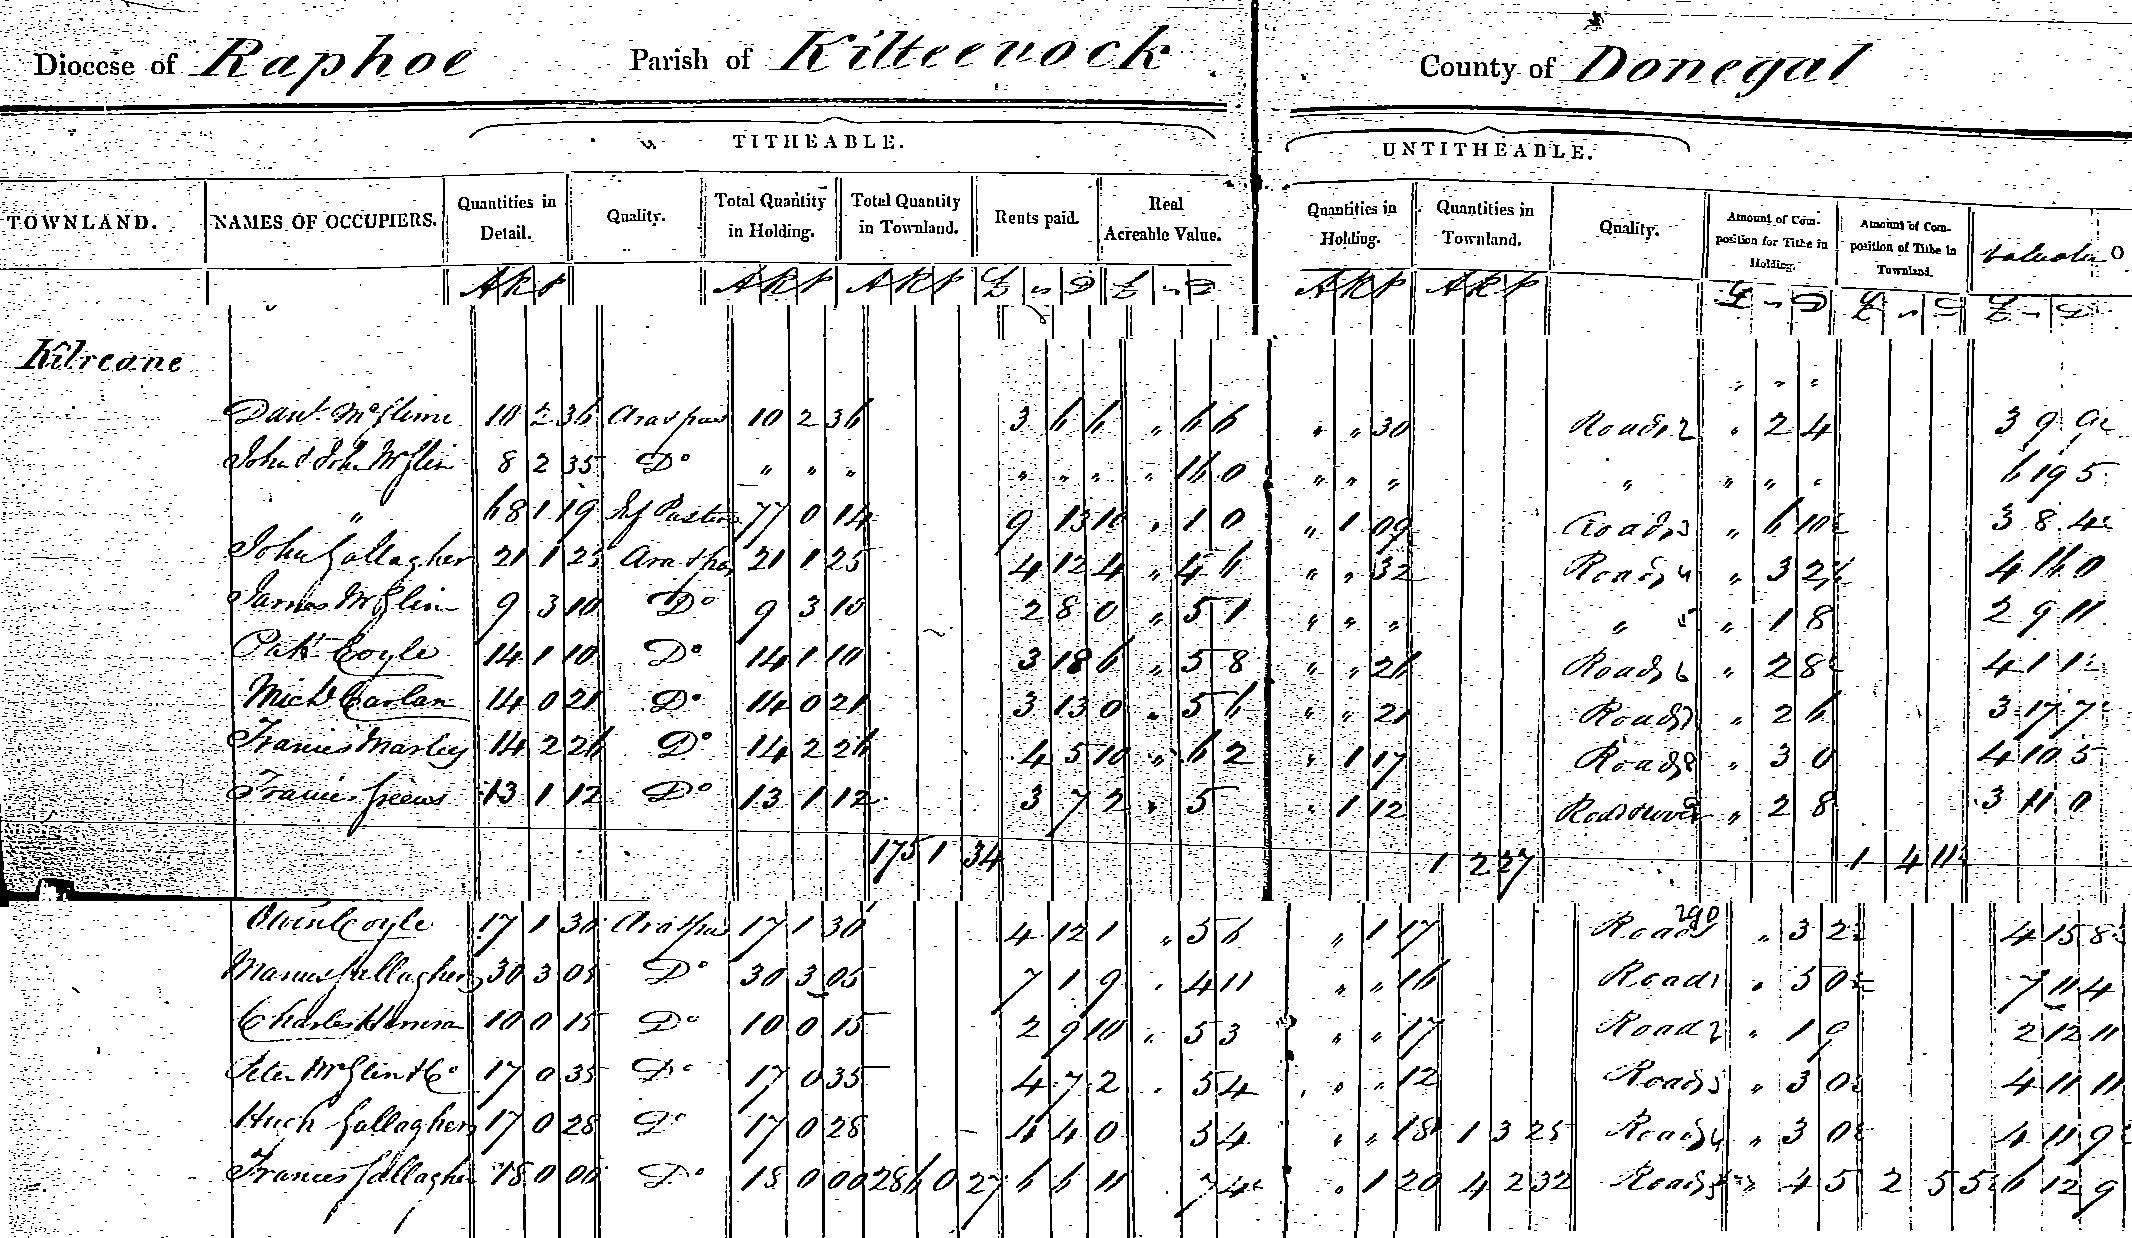 Diocese of Raphoe Parish of Kilteevock County of Donegal
TITHEABLE. UNTITHEABLE.
TOWNLAND. NAMES OF OCCUPIERS. Quantities in Detail. Quality. Total Quantity in Holding. Total Quantity in Townland. Rents paid. Real Acreable Value. Quantities in Holding. Quantities in Townland. Quality. Amount of Com- position for Tithe in Holding. Amount of Com- position of Tithe in Townland.
A R P A R P A R P £ s D £ s D A R P A R P £ s D £ s D £ s D
Kilreane
" " "
Danl. McGlinn 10 2 36 10 2 36 3 6 6 " 6 6 " " 30 Roads 2 " 2 4 3 9
John & John McGlin 8 2 35 Do " " " " " " " 16 0 " " " " " " " 6 19 5
" 68 1 19 Pasture 77 0 14 9 13 10 " 1 0 " 1 09 Roads 3 " 6 10 3 8 4
John Gallagher 21 1 25 21 1 25 4 12 4 " 4 6 " " 32 Roads 4 " 3 2 4 16 0
James McGlin 9 3 10 Do 9 3 10 2 8 0 " 5 1 " " " " 5 " 1 8 2 9 11
Patk Coyle 14 1 10 Do 14 1 10 3 18 6 " 5 8 " " 26 Roads 6 " 2 8 4 1 1
Michl Carlan 14 0 21 Do 14 0 21 3 13 0 " 5 6 " " 21 Roads 7 " 2 6 3 17 7
Francis Marley 14 2 26 Do 14 2 26 4 5 10 " 6 2 " 1 17 Roads 8 " 3 0 4 10 5
Francis 13 1 12 Do 13 1 12 3 7 2 " 5 " 1 12 " 2 8 3 11 0
175 1 34 1 2 27 1 4 11
Owin Coyle 17 1 30 17 1 30 4 12 1 " 5 6 " 1 17 Roads 290 " 3 2 4 15 8
Manus Gallagher 30 3 05 Do 30 3 05 7 1 9 " 4 11 " " 16 Road 1 " 5 0 7 11 4
Charles 10 0 15 Do 10 0 15 2 9 10 " 5 3 " " 17 Road 2 " 1 9 2 12 11
Peter McGlin & Co 17 0 35 Do 17 0 35 4 7 2 " 5 4 " " 12 Roads 3 " 3 0 4 11 11
Hugh Gallagher 17 0 28 Do 17 0 28 4 4 0 5 4 " " 18 1 3 25 Roads 4 " 3 0 4 11 9
Frances Gallagher 18 0 00 Do 18 0 00 286 0 27 6 6 11 7 4 " 1 20 4 2 32 Roads 5 " 4 5 2 5 5 6 12 9